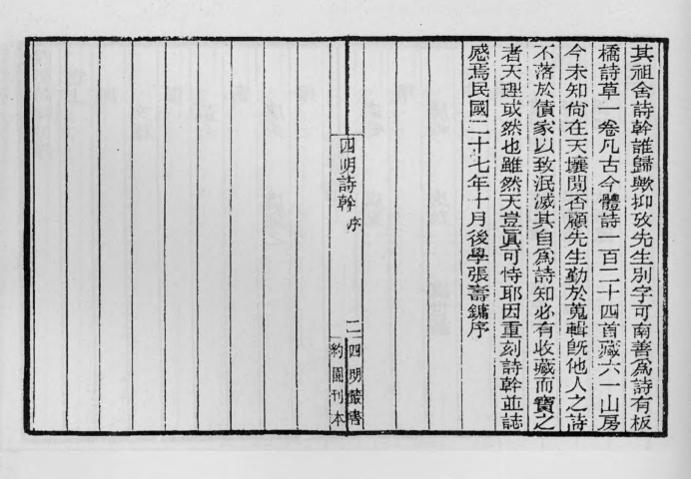 其祖舍詩幹誰歸歟抑攷先生別字可南善爲詩有板
橋詩草一卷凡古今體詩一百二十四首藏六一山房
今未知尙在天壤閒否顧先生勤於蒐輯旣他人之詩
不落於債家以致泯滅其自爲詩知必有收藏而寶之
者天理或然也雖然天豈眞可恃耶因重刻詩幹並誌
感焉民國二十七年十月後學張壽鏞序
四明詩幹 序
二 四明叢書
約園刊本